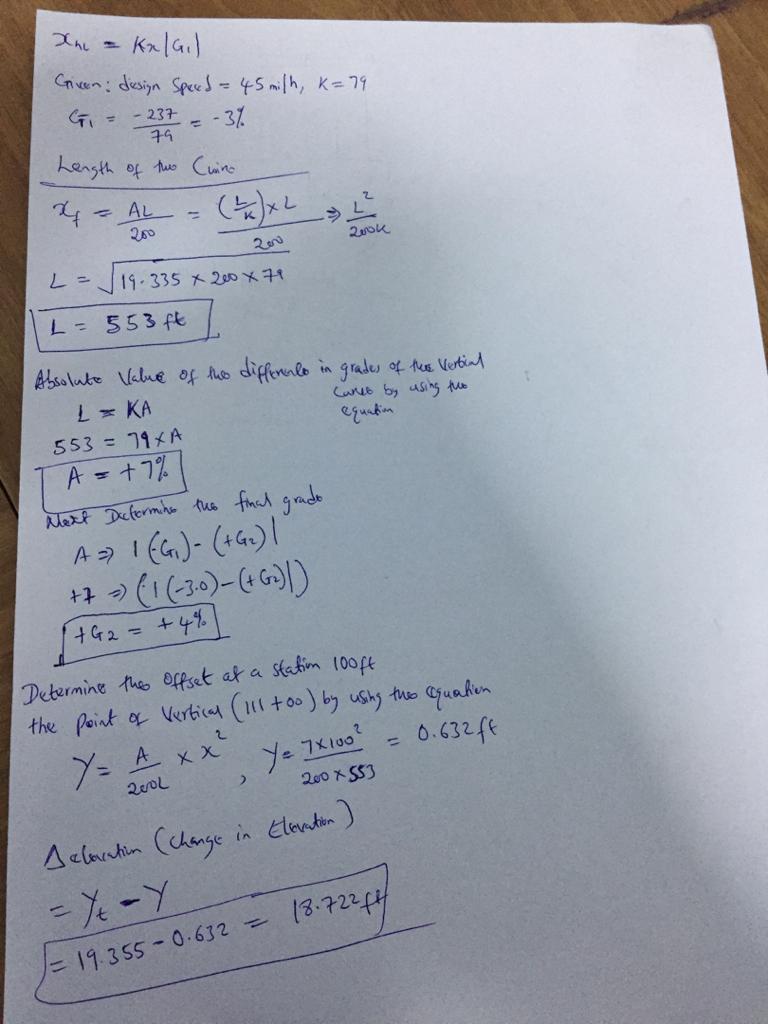 xhl = Kx|G1|
Given: design Speed = 45 mi/h, K = 79
G1 = -237/79 = -3%
Length of the Curve
xf = AL/200 = (L/K)×L/200 ⇒ L²/200K
L = √19.335 × 200 × 79
L = 553 ft
Absolute Value of the difference in grades of the Vertical
curves by using the
equation
L = KA
553 = 79 × A
A = +7%
Next Determine the final grade
A ⇒ |(-G1) - (+G2)|
+7 ⇒ (|(-3.0) - (+G2)|)
+G2 = +4%
Determine the Offset at a station 100ft
the Point of Vertical (111+00) by using the equation
Y = A/200L × x², Y = 7×100²/200×553 = 0.632ft
Δelevation (change in Elevation)
= Yt - Y
= 19.355 - 0.632 = 18.722ft